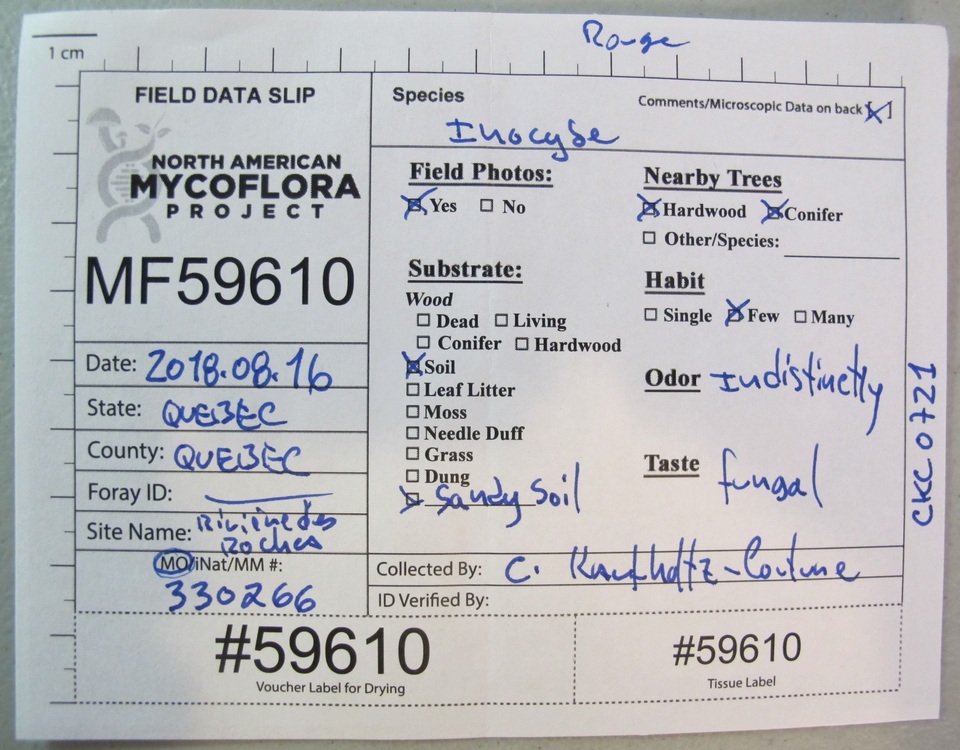 Rouge
1 cm
FIELD DATA SLIP
NORTH AMERICAN
MYCOFLORA
PROJECT
MF59610
Date: 2018.08.16
State: QUEBEC
County: QUEBEC
Foray ID:
Site Name: Rivière des
Roches
MO/iNat/MM #:
330266
Species
Comments/Microscopic Data on back [X]
Inocybe
Field Photos:
☒ Yes ☐ No
Substrate:
Wood
☐ Dead ☐ Living
☐ Conifer ☐ Hardwood
☒ Soil
☐ Leaf Litter
☐ Moss
☐ Needle Duff
☐ Grass
☐ Dung
☒ Sandy Soil
Nearby Trees
☒ Hardwood ☒ Conifer
☐ Other/Species:
Habit
☐ Single ☒ Few ☐ Many
Odor Indistinctly
Taste fungal
Collected By: C. Kaufholtz-Couture
ID Verified By:
CKC0721
#59610
Voucher Label for Drying
#59610
Tissue Label